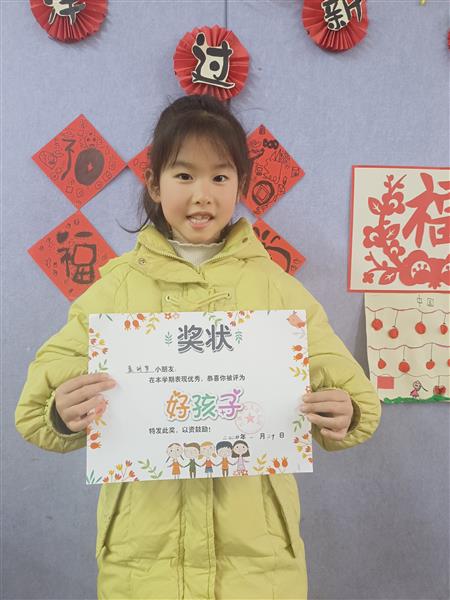 过
新
福
福
中国
奖状
小朋友:
在本学期表现优秀,恭喜你被评为
好孩子
特发此奖,以资鼓励!
年 月 日